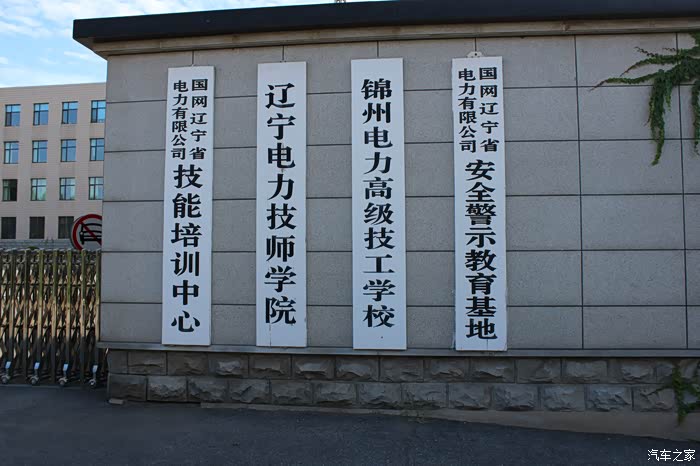 国网辽宁省
电力有限公司
技能培训中心
辽宁电力技师学院
锦州电力高级技工学校
国网辽宁省
电力有限公司
安全警示教育基地
汽车之家